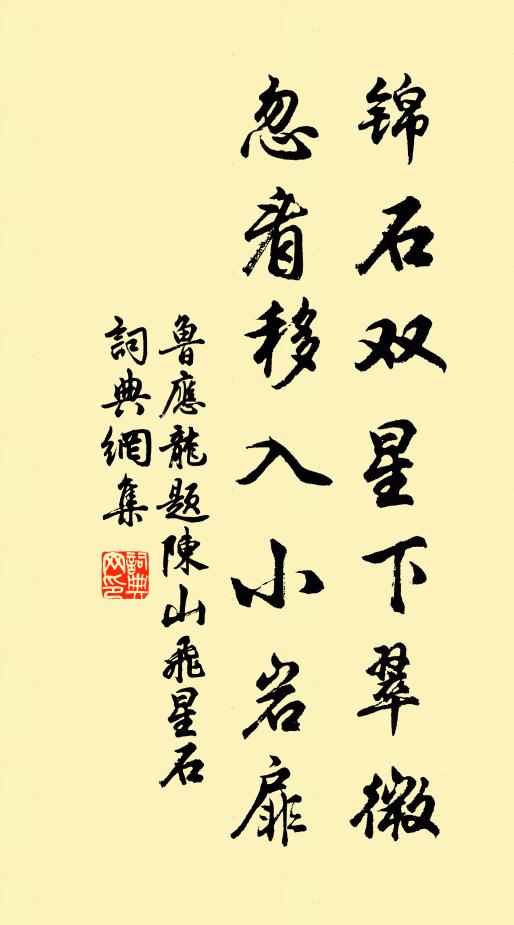 锦石双星下翠微
忽看移入小岩扉
魯應龍题陳山飛星石
詞典網集
詞典网印